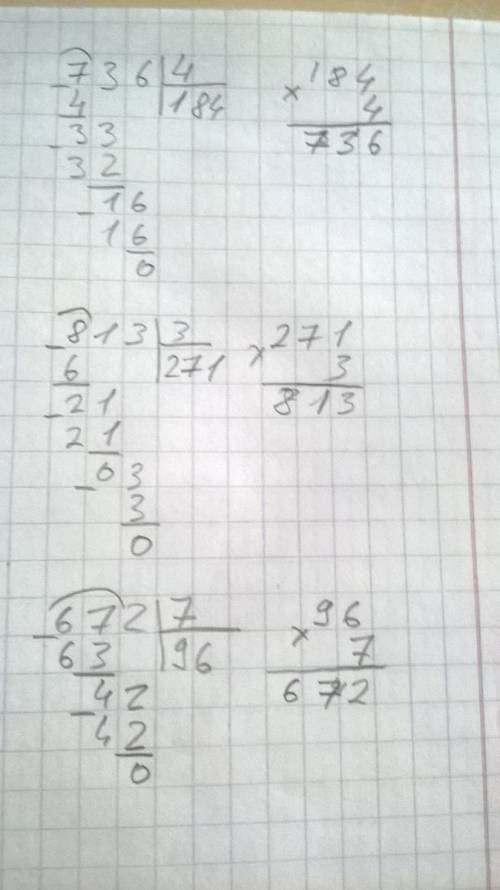 736|4 × 184
- 4 |184 4
- 33 736
32
- 16
16
0
- 813|3 × 271
6 |271 3
- 21 813
21
- 03
3
0
- 672|7 × 96
63 |96 7
- 42 672
42
0